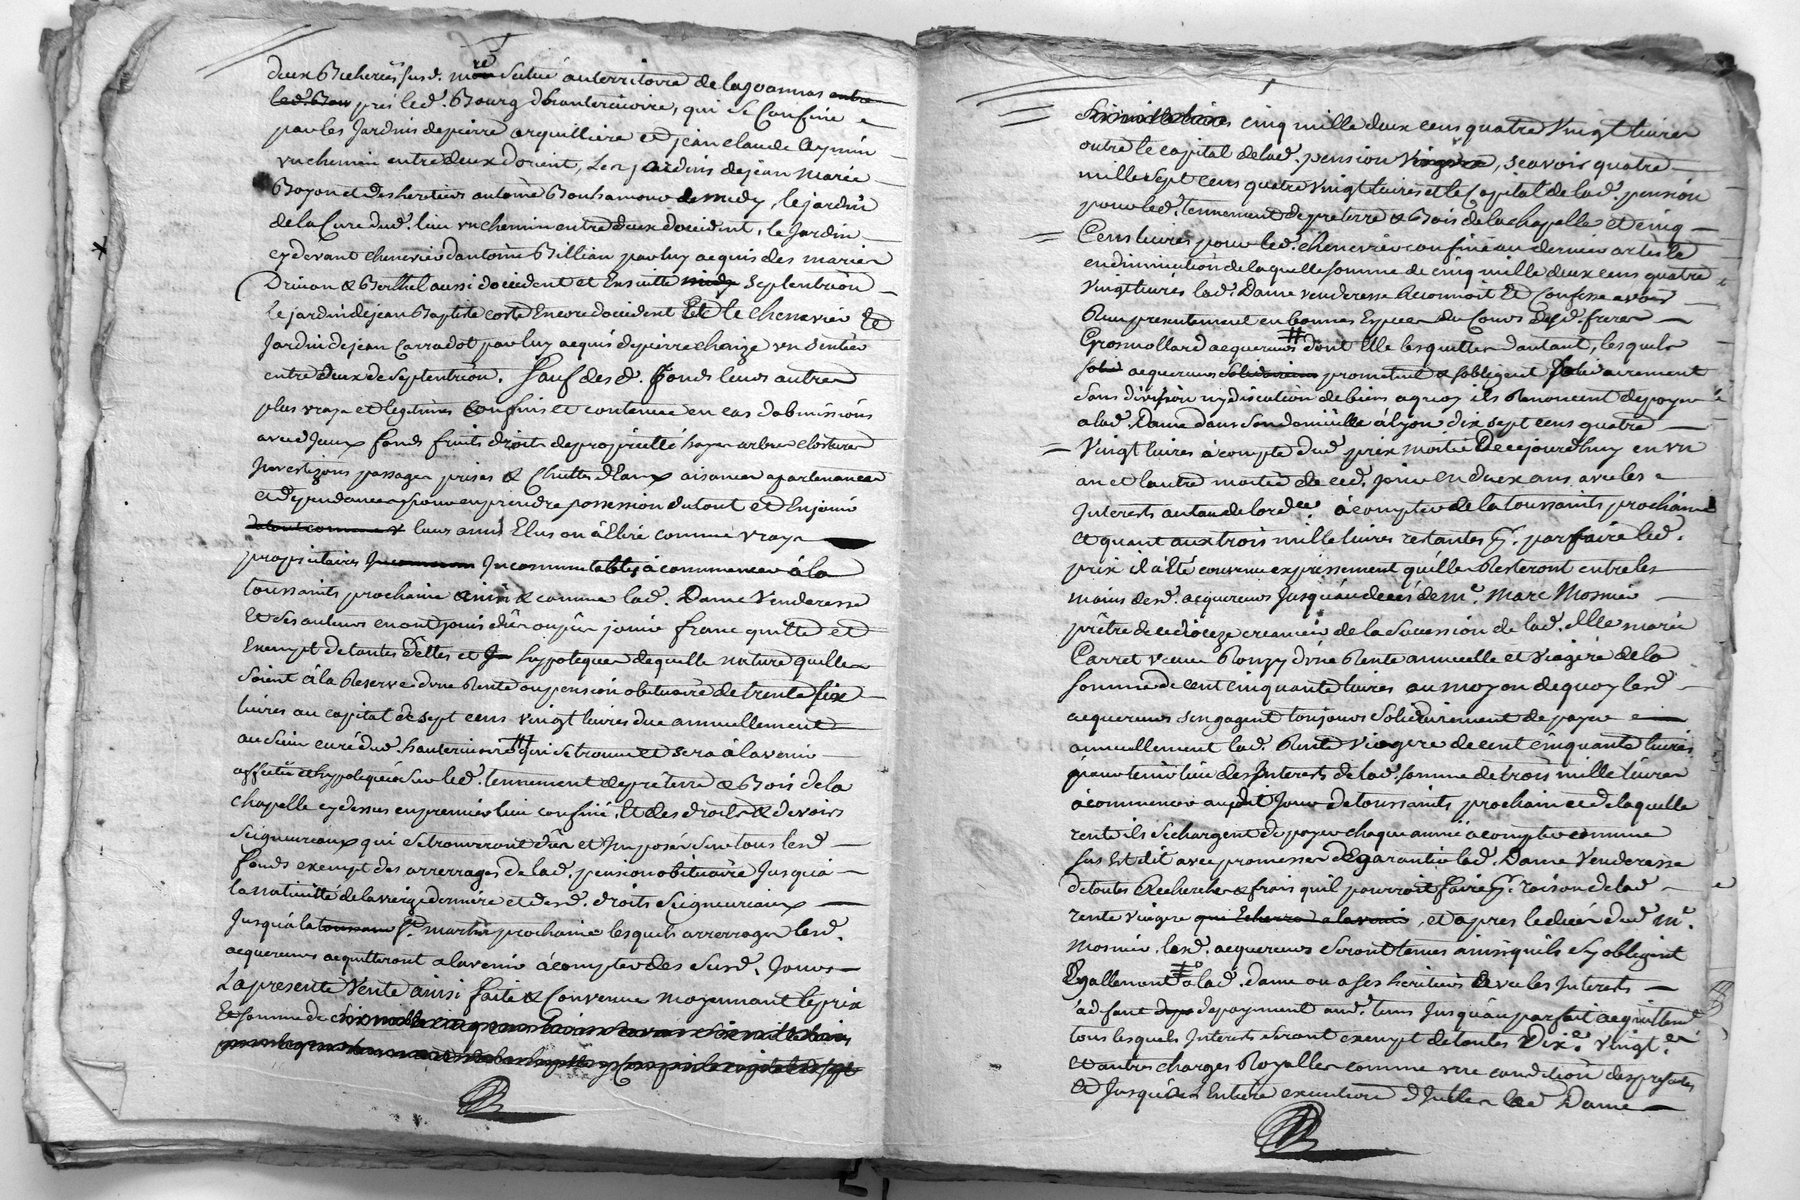 deux Bicherées susd. mre située au territoire de lagoannas entre
led. Bou près led. Bourg d'hauterivoire, qui se Confine
par les Jardins de pierre arquilliere et jean claude Aymin
un chemin entre deux d'orient, Les jardins de jean Marie
Boyon et des heritiers antoine Bonhamour de midy, le jardin
de la Cure dud. lieu un chemin entre deux d'occident, le Jardin
cy devant chenevier d'antoine Billian par luy acquis des mariés
& Berthel aussi d'occident et Ensuitte midy Septentrion
Le jardin de jean Baptiste coste Encore d'occident Et le chenevier Et
Jardin de jean Carradot par luy acquis de pierre chaize un sentier
entre deux de Septentrion. Sauf desd. fonds leurs autres
plus vrays et legitimes Confins et contenue en cas d'obmissions
avec Jceux fonds fruits droits de proprieté hayes arbres clostures
Jnvestizons passages prises & Chuttes d'Eaux aisances apartenances
et dependances pour en prendre possession du tout et En jouir
du tout comme v leurs amis Elus ou à Elire comme vrays
propriétaires Jncommutables à commencer à la
toussaints prochaine ainsi & comme lad. Dame Venderesse
Et ses auteurs en ont jouis dû ou pû jouir franc quitte et
Exempt de toutes Dettes et Jn hypoteques de quelle nature quelles
Soient à la Reserve d'une Rente ou pension obituaire de trente six
livres au capital de sept cens vingt livres due annuellement
au Sieur curé dud. hauterivoire # qui se trouve et sera à l'avenir
affectée et hypotequée sur led. tennement de pré terre & Bois de la
chapelle cy dessus en premier lieu confiné, Et des droits & devoirs
Seigneuriaux qui se trouveront dûs et Jmposés sur tous lesd.
fonds exempt des arrerrages de lad. pension obituaire Jusqu'à
la nativitté de la vierge derniere et desd. droits Seigneuriaux
Jusqu'à la toussaint St. martin prochaine lesquels arrerrages lesd.
acquereurs acquitteront à l'avenir à compter des Susd. Jours
La presente Vente ainsi faite & Convenue moyennant le prix
Et somme de
Six mille livres cinq mille deux cens quatre Vingt livres
outre le capital de lad. pension viagere, sçavoir quatre
mille Sept cens quatre vingt livres et le Capital de lad. pension
pour led. tennement de pré terre & Bois de la chapelle et cinq
Cens livres pour led. chenevier confiné au dernier article
en diminution de laquelle somme de cinq mille deux cens quatre
Vingt livres lad. Dame venderesse Reconnoit Et Confesse avoir
Reçu presentement en bonnes Especes du Cours desd. freres
Grosmollard acquereurs # dont Elle les quitte d'autant, lesquels
acquereurs solidairem promettent & s'obligent Solidairement
Sans division ny discution de biens a quoy ils Renoncent de payer
a lad. Dame dans Son domicille à lyon dix sept cens quatre
Vingt livres à compte dud. prix moitié De ce jourd'huy en un
an et l'autre moitié de ced. jour en deux ans, avec les
Jnterests au taux de l'ordce. à compter de la toussaints prochaine
et quant aux trois mille livres restantes pr. parfaire led.
prix il a été convenu expressement qu'elles Resteront entre les
mains desd. acquereurs Jusqu'au décés de Mr. Marc Mosnier
prêtre de ce dioceze creancier de la Sucession de lad. dlle marie
Carret veuve Ronzy d'une Rente annuelle et Viagere de la
somme de cent cinquante livres au moyen de quoy lesd.
acquereurs s'engagent toujours Solidairement de payer
annuellement lad. Rente Viagere de cent cinquante livres
pour tenir lieu des Jnterests de lad. somme de trois mille livres
à commencer audit Jour de toussaints prochain et de laquelle
rente ils se chargent de payer chaque année à compter comme
sus Est dit avec promesse de garantir lad. Dame Venderesse
de toutes Recherches & frais qu'il pourroit faire pr. raison de lad.
rente viagere qui Echerra à l'avenir, et apres le décés dud. Mr.
Mosnier, lesd. acquereurs seront tenus ainsi qu'ils s'y obligent
Egallement # à lad. Dame ou a ses heritiers avec les Jnterests
de payement aud. tems Jusqu'au parfait acquittement
tous lesquels Jnterests seront exempt de toutes Dixe. vingte.
et autres charges Royalles comme une condition des presentes
Et Jusqu'à Entiere execution d'Jcelles lad. Dame